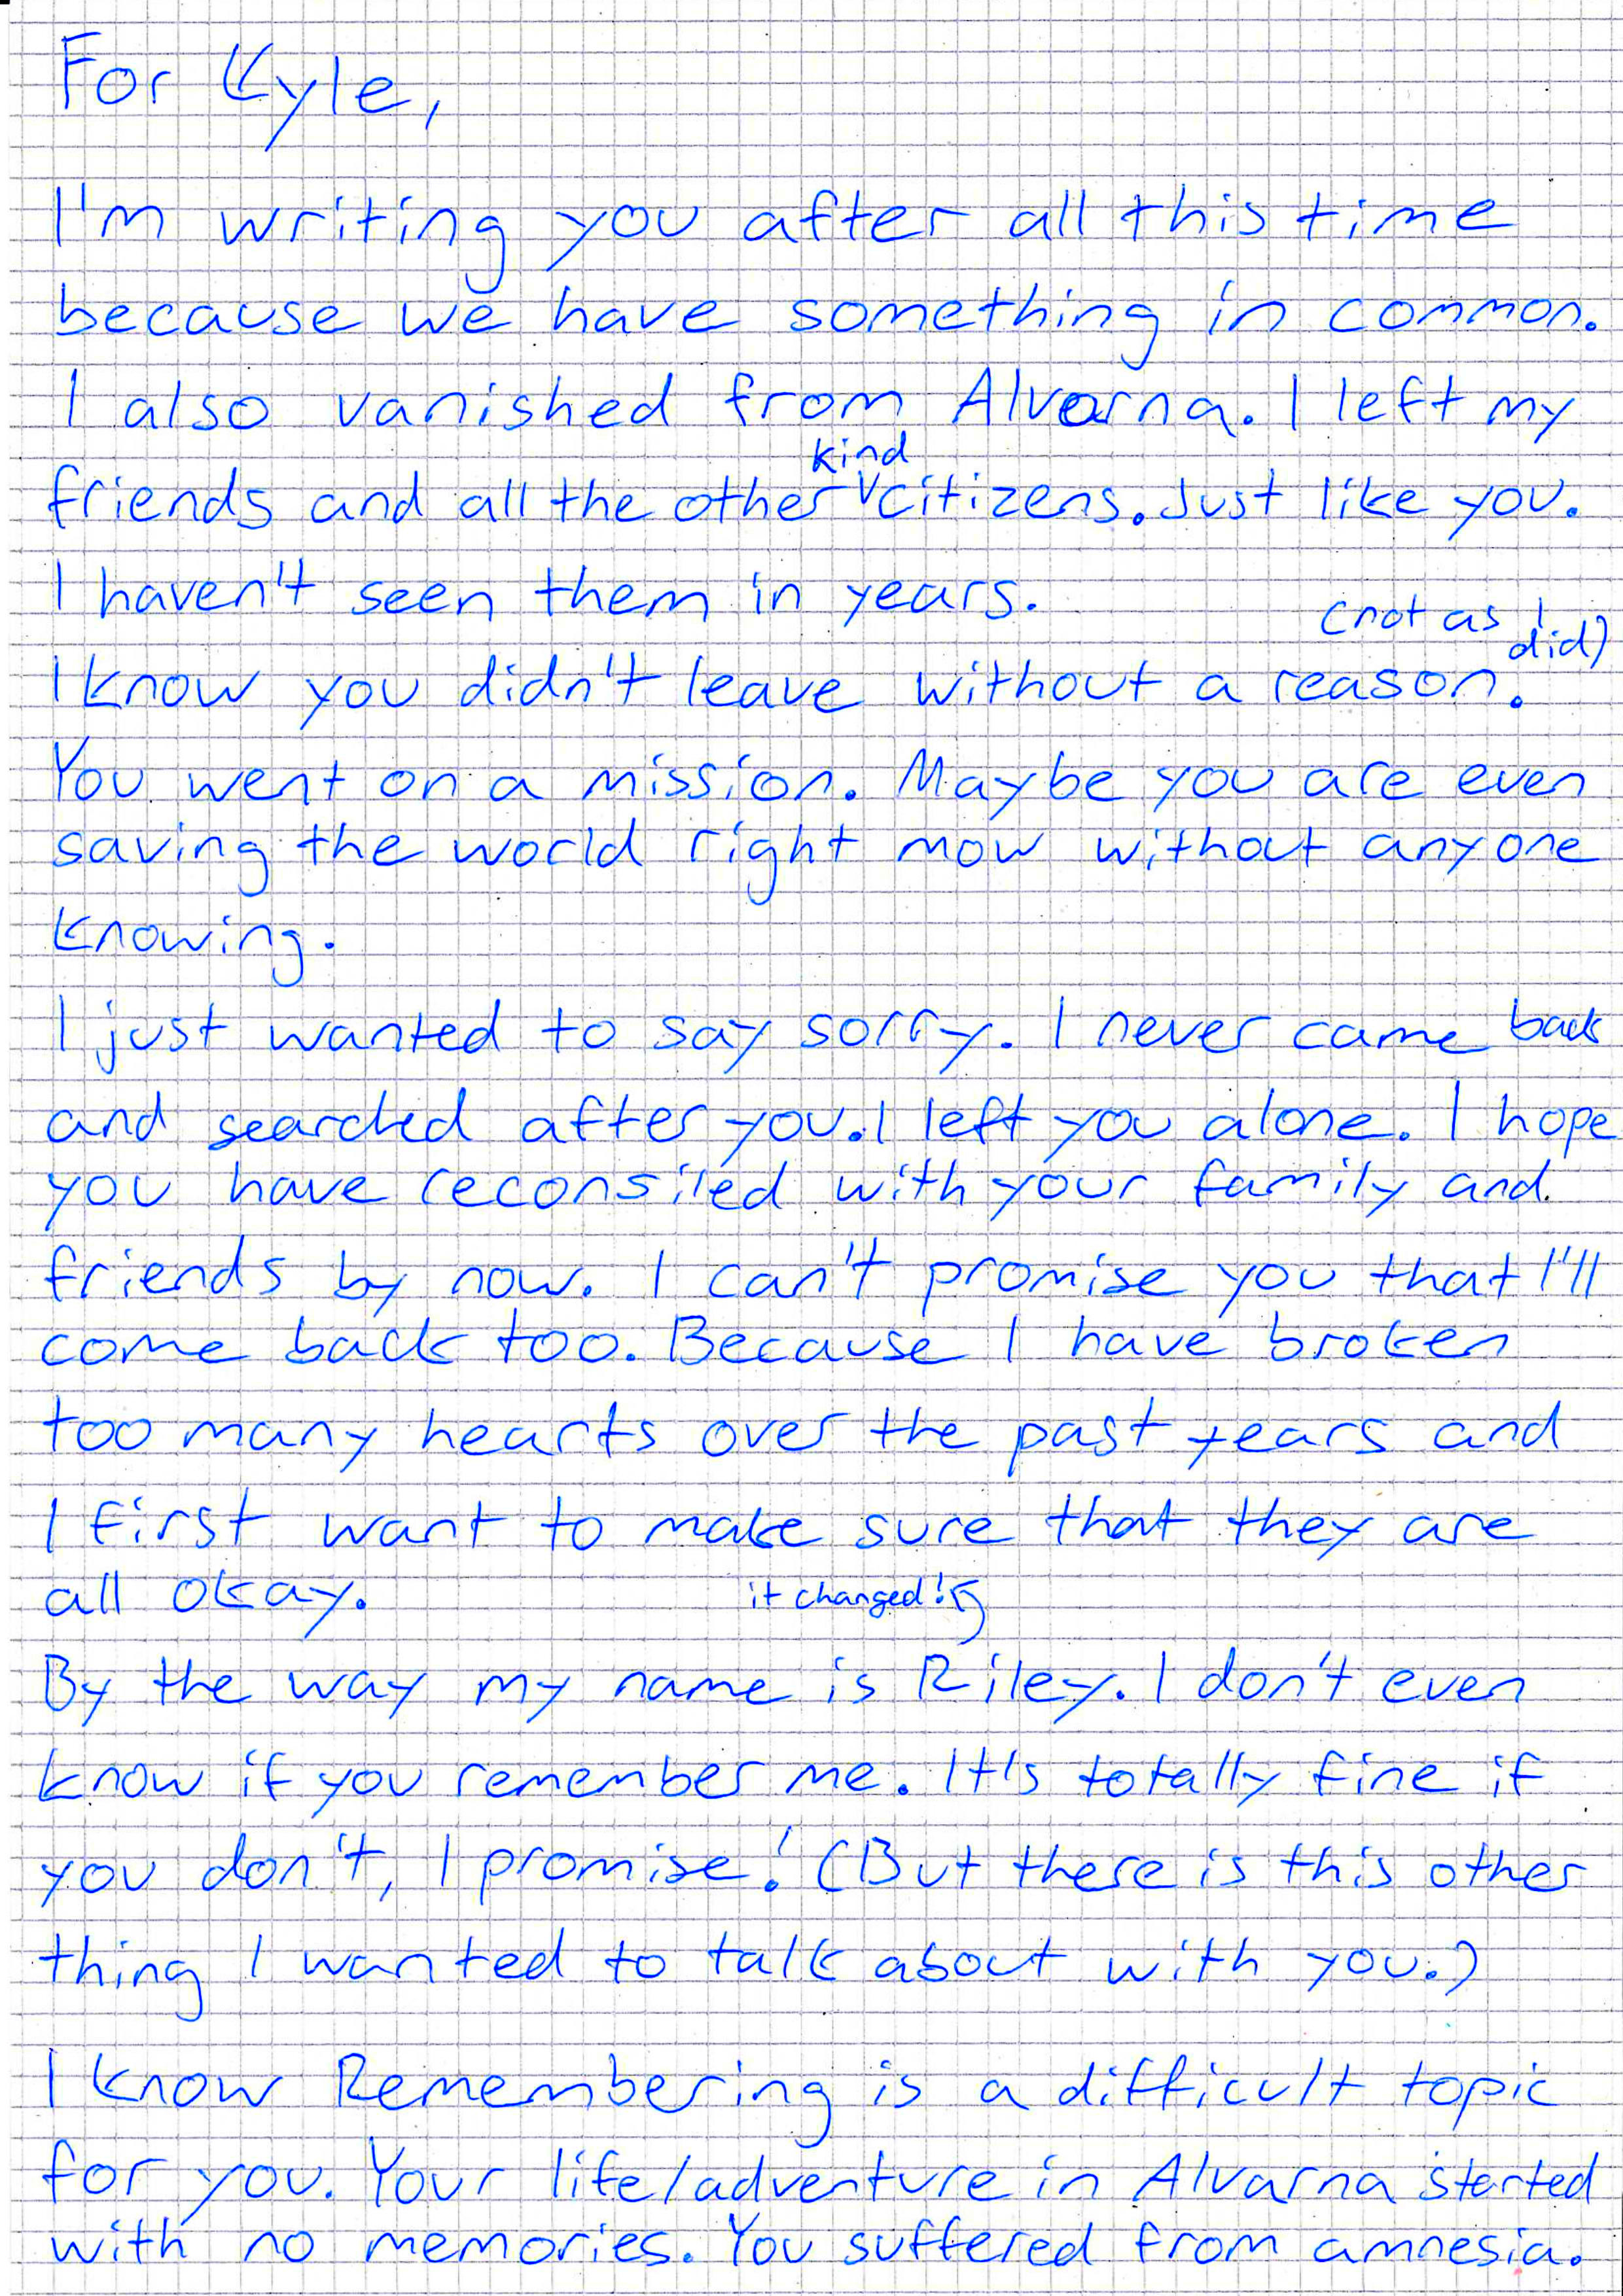 For Kyle,
I'm writing you after all this time
because we have something in common.
I also vanished from Alvarna. I left my
kind
friends and all the other ∨citizens. Just like you.
I haven't seen them in years.
(not as I did)
I know you didn't leave without a reason.
You went on a mission. Maybe you are even
saving the world right mow without anyone
knowing.
I just wanted to say sorry. I never came back
and searched after you. I left you alone. I hope
you have reconsiled with your family and
friends by now. I can't promise you that I'll
come back too. Because I have broken
too many hearts over the past years and
I first want to make sure that they are
all okay.
it changed!
By the way my name is Riley. I don't even
know if you remember me. It's totally fine if
you don't, I promise! (But there is this other
thing I wanted to talk about with you.)
I know Remembering is a difficult topic
for you. Your life/adventure in Alvarna started
with no memories. You suffered from amnesia.